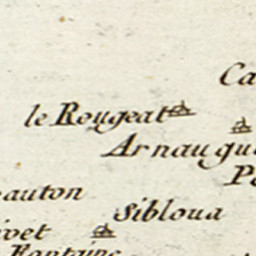 Ca
le Rougeat
Arnaugu
P
auton
Sibloua
ivet
Fontaine